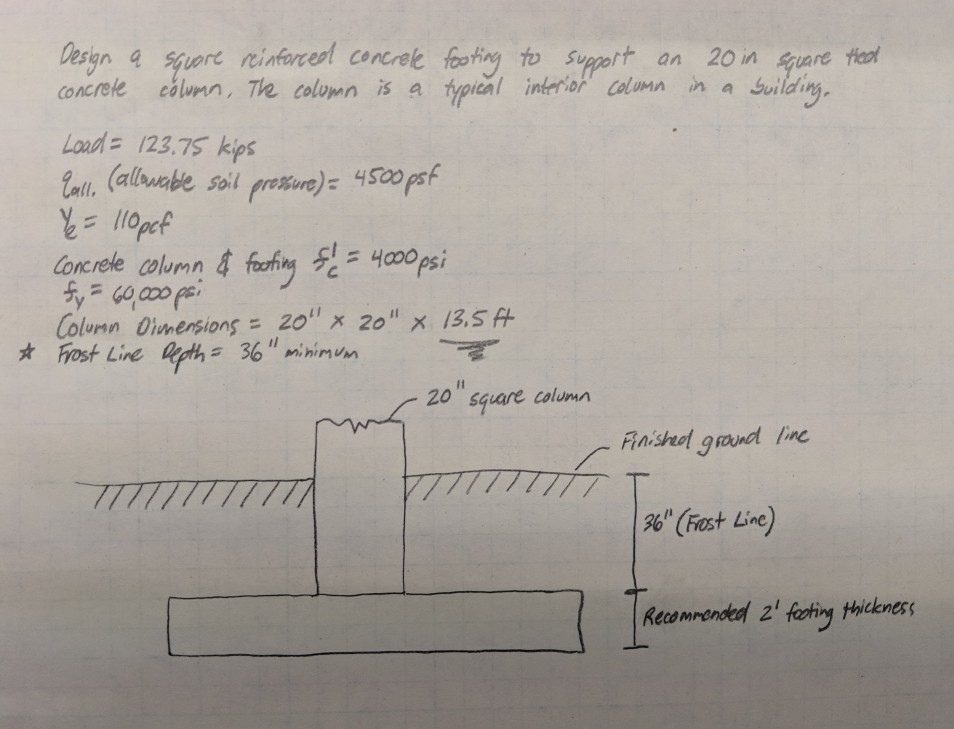 Design a square reinforced concrete footing to support an 20 in square tied
concrete column. The column is a typical interior column in a building.
Load = 123.75 kips
qall. (allowable soil pressure) = 4500 psf
γe = 110 pcf
Concrete column & footing f'c = 4000 psi
fy = 60,000 psi
Column Dimensions = 20" x 20" x 13.5 ft
* Frost Line Depth = 36" minimum
20" square column
Finished ground line
36" (Frost Line)
Recommended 2' footing thickness